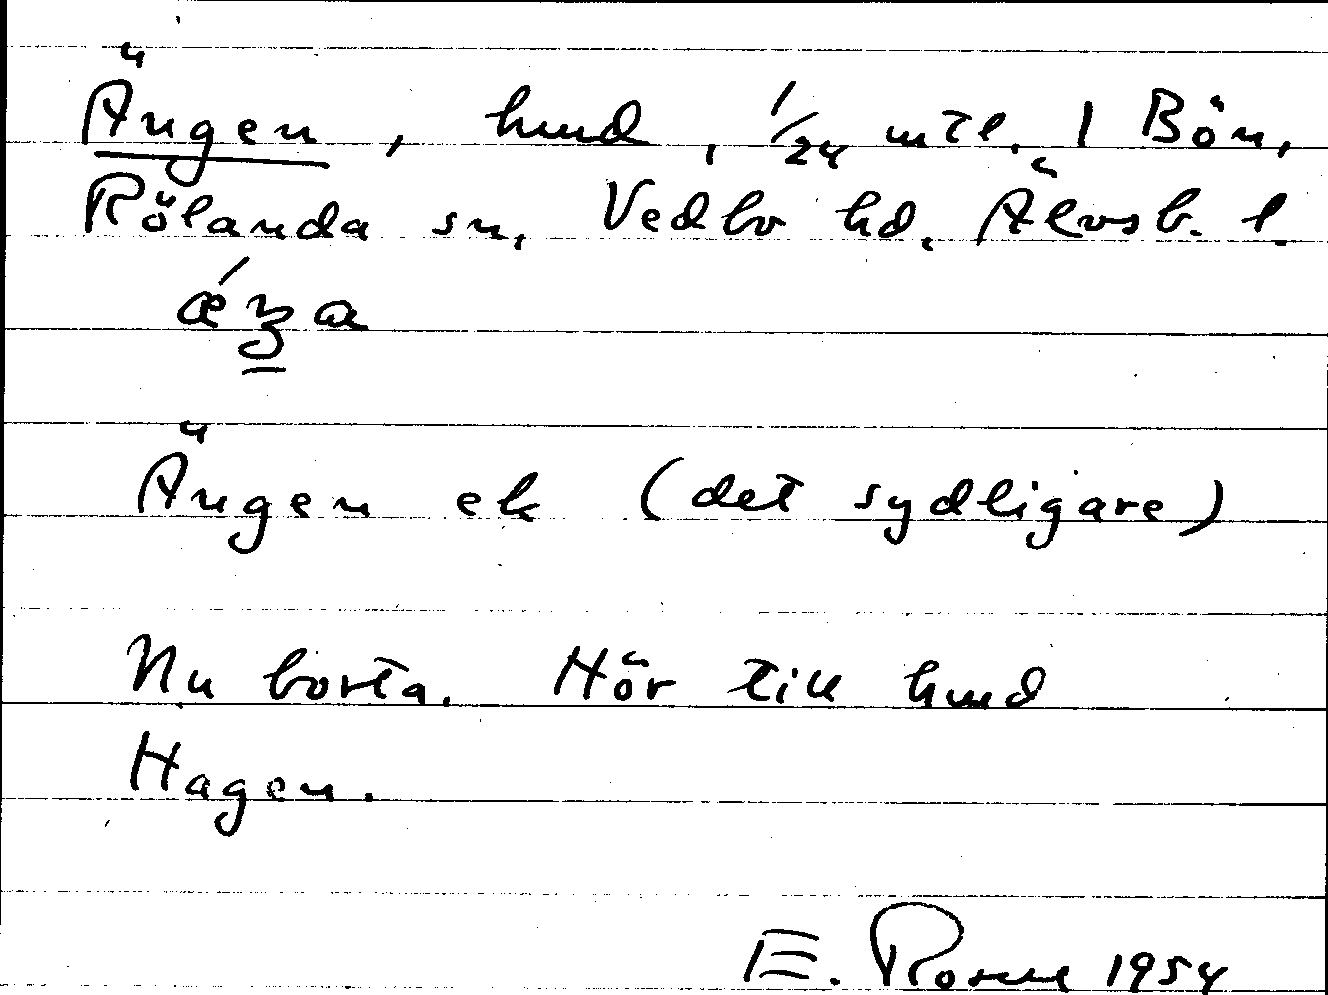 Ängen, hmd, 1/24 mtl. 1 Bön,
Rölanda sn, Vedbo hd, Älvsb. l.
Ängen ek (det sydligare)
Nu borta. Hör till hmd
Hagen.
E. Rosell 1954